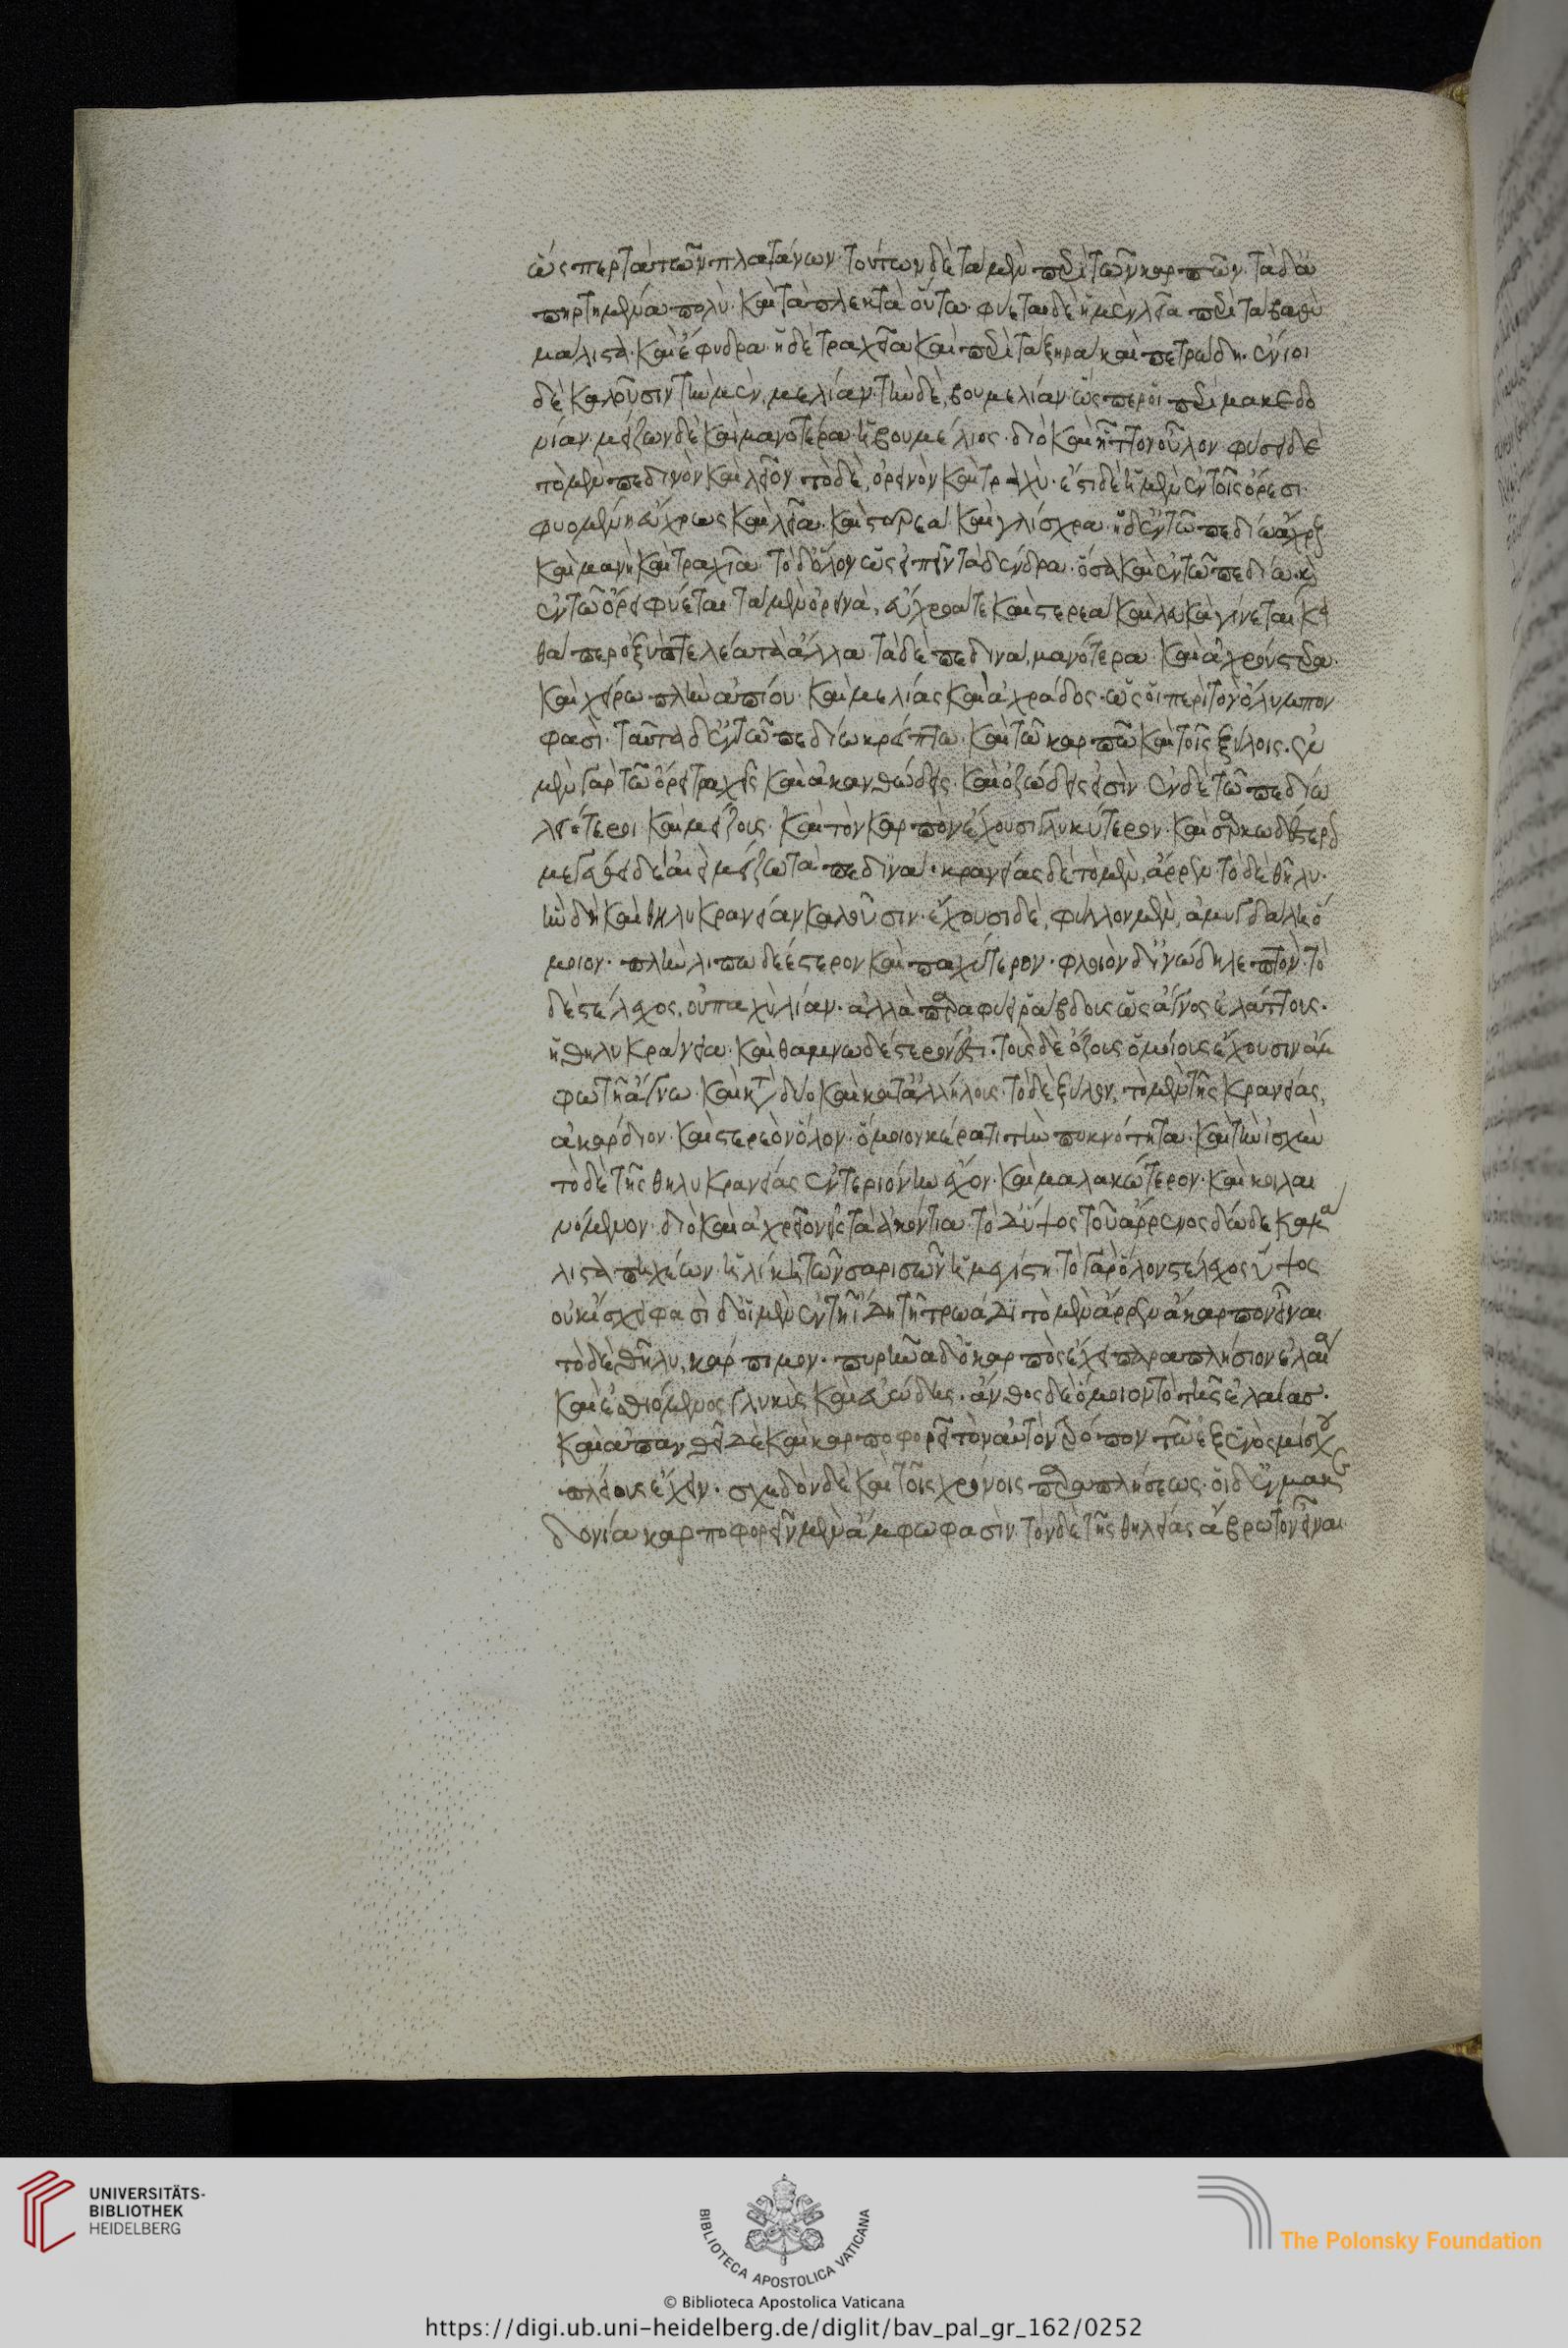 ὥσπερ τὰ τῶν πλατάνων· τούτων δὲ τὰ μὲν περὶ τῶν καρπῶν· τὰ δ' ἀ
πηρτημένα πολὺ· καὶ τὰ πλεκτὰ οὕτω· φύεται δὲ ἡ μὲν λεία περὶ τὰ βαθὺ
μάλιστα· καὶ ἔφυδρα· ἡ δὲ τραχεῖα καὶ περὶ τὰ ξηρὰ καὶ πετρώδη· ἔνιοι
δὲ καλοῦσιν τὴν μὲν, μελίαν· τὴν δὲ, βουμελίαν· ὥσπερ οἱ περὶ μακεδο
νίαν· μείζων δὲ καὶ μανοτέρα ἡ βουμέλιος· διὸ καὶ ἧττον οὖλον· φύσει δὲ
τὸ μὲν πεδινὸν καὶ λεῖον· τὸ δὲ, ὀρεινὸν καὶ τραχὺ· ἔστι δὲ ἡ μὲν ἐν τοῖς ὄρεσι
φυομένη εὔχρως καὶ λεία· καὶ στερεὰ καὶ γλίσχρα· ἡ δ' ἐν τῷ πεδίῳ ἄχρους
καὶ μανὴ καὶ τραχεῖα· τὸ δ' ὅλον ὡς εἰπεῖν τὰ δένδρα· ὅσα καὶ ἐν τῷ πεδίῳ· καὶ
ἐν τῷ ὄρει φύεται· τὰ μὲν ὀρεινὰ, εὔχροά τε καὶ στερεὰ καὶ λεῖα γίνεται κα
θάπερ ὀξύη πτελέα τὰ ἄλλα· τὰ δὲ πεδινὰ, μανότερα καὶ ἀχρούστερα·
καὶ χείρω πλὴν ἀπίου· καὶ μελίας καὶ ἀχράδος· ὡς οἱ περὶ τὸν ὄλυμπον
φασὶ· ταῦτα δ' ἐν τῷ πεδίῳ κρείττω· καὶ τῷ καρπῷ καὶ τοῖς ξύλοις· ἐν
μὲν γὰρ τῷ ὄρει τραχεῖς καὶ ἀκανθώδεις· καὶ ὀζώδεις εἰσὶν· ἐν δὲ τῷ πεδίῳ
λειότεροι καὶ μείζους· καὶ τὸν καρπὸν ἔχουσι γλυκύτερον· καὶ σαρκωδέστερον
μεγέθει δὲ αἰεὶ μείζω τὰ πεδινά· κρανείας δὲ τὸ μὲν, ἄρρεν· τὸ δὲ θῆλυ·
ἣν δὴ καὶ θηλυκρανείαν καλοῦσιν· ἔχουσι δὲ, φύλλον μὲν, ἀμυγδάλῃ ὅ
μοιον· πλὴν λιπωδέστερον καὶ παχύτερον· φλοιὸν δ' ἰνώδη λεπτόν· τὸ
δὲ στέλεχος, οὐ παχὺ λίαν· ἀλλὰ παραφύει ῥάβδους ὡς ἄγνος ἐλάττους·
ἡ θηλυκράνεια· καὶ θαμνωδέστερόν ἐστι· τοὺς δὲ ὄζους ὁμοίους ἔχουσιν ἄμ
φω τῇ ἄγνῳ· καὶ κατὰ δύο καὶ κατ' ἀλλήλους· τὸ δὲ ξύλον, τὸ μὲν τῆς κρανείας,
ἀκάρδιον· καὶ στερεὸν ὅλον· ὅμοιον κέρατι τὴν πυκνότητα· καὶ τὴν ἰσχὺν
τὸ δὲ τῆς θηλυκρανείας ἐντεριώνην ἔχον· καὶ μαλακώτερον· καὶ κοιλαι
νόμενον· διὸ καὶ ἀχρεῖον εἰς τὰ ἀκόντια· τὸ δ' ὕψος τοῦ ἄρρενος δώδεκα μά
λιστα πήχεων· ἡλίκη τῶν σαρισῶν ἡ μεγίστη· τὸ γὰρ ὅλον στέλεχος ὕψος
οὐκ ἴσχει φασὶ δ' οἱ μὲν ἐν τῇ ἴδῃ τῇ τρωάδι τὸ μὲν ἄρρεν ἄκαρπον εἶναι
τὸ δὲ θῆλυ, κάρπιμον· πυρῆνα δ' ὁ καρπὸς ἔχει παραπλήσιον ἐλαίᾳ
καὶ ἐσθιόμενος γλυκὺς καὶ εὐώδης· ἄνθος δὲ ὅμοιον τὸ τῆς ἐλαίας·
καὶ ἀπανθεῖ δὲ καὶ καρποφορεῖ τὸν αὐτὸν τρόπον τῷ ἐξ ἑνὸς μίσχου
πλείους ἔχειν· σχεδὸν δὲ καὶ τοῖς χρόνοις παραπλησίως· οἱ δ' ἐν μακε
δονίᾳ καρποφορεῖν μὲν ἄμφω φασὶν· τὸν δὲ τῆς θηλείας ἄβρωτον εἶναι
UNIVERSITÄTS-
BIBLIOTHEK
HEIDELBERG
BIBLIOTECA APOSTOLICA VATICANA
The Polonsky Foundation
© Biblioteca Apostolica Vaticana
https://digi.ub.uni-heidelberg.de/diglit/bav_pal_gr_162/0252